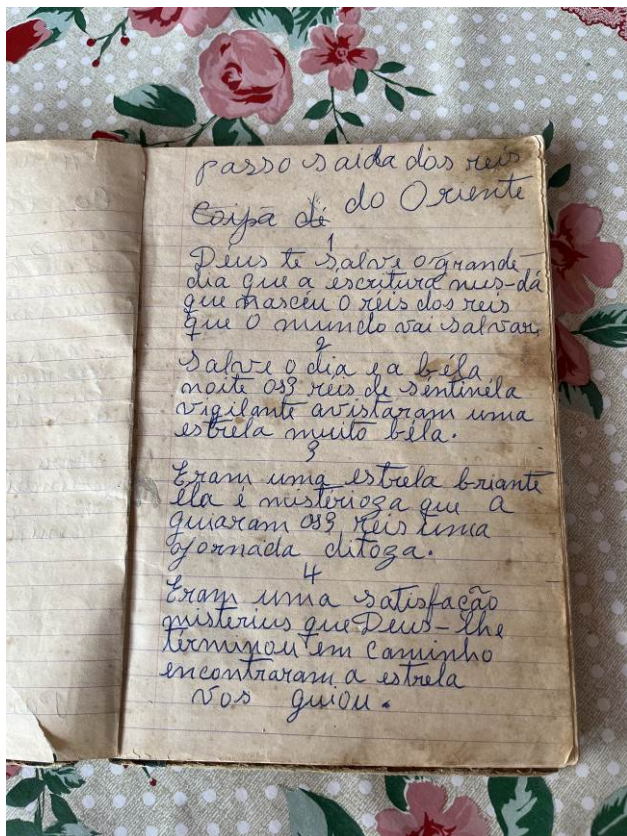 passo saida dos reis
do Oriente
1
Deus te salve o grande
dia que a escritura nus-dá
que nasceu o reis dos reis
que o mundo vai salvar.
2
Salve o dia e a béla
noite os3 reis de séntinéla
vigilante avistaram uma
estrela muito béla.
3
Eram uma estrela briante
éla é misterioza que a
guiaram os3 reis uma
jornada ditoza.
4
Eram uma satisfação
misterius que Deus-lhe
términou em caminho
encontraram a estrela
vos guiou.